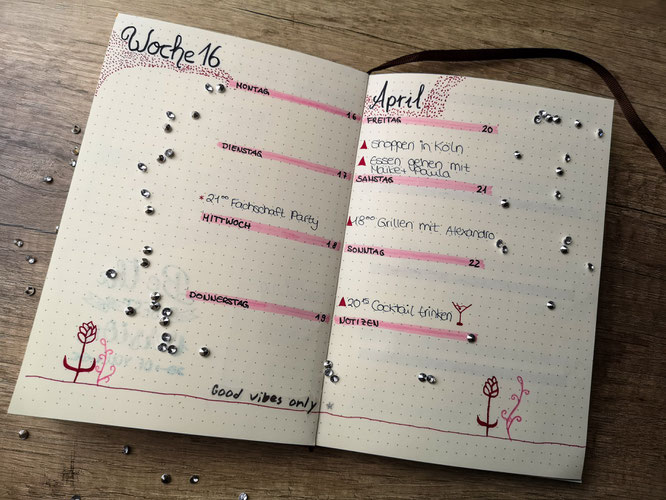 Woche 16
MONTAG 16
DIENSTAG 17
21⁰⁰ Fachschaft Party
MITTWOCH 18
DONNERSTAG 19
Good vibes only
April
FREITAG 20
Shoppen in Köln
Essen gehen mit
Maike + Paula
SAMSTAG 21
18⁰⁰ Grillen mit Alexandro
SONNTAG 22
20¹⁵ Cocktail trinken
NOTIZEN